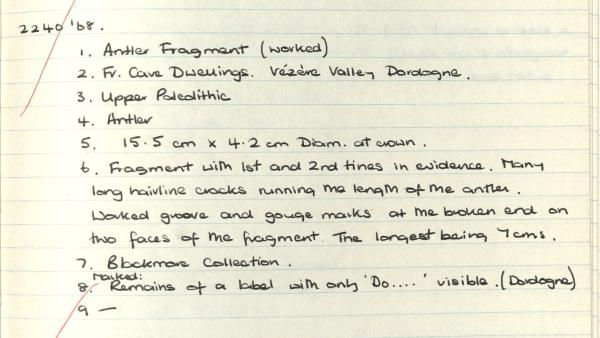 2240 '68.
1. Antler Fragment (worked)
2. Fr. Cave Dwellings. Vézère Valley Dordogne.
3. Upper Paleolithic
4. Antler
5. 15.5 cm x 4.2 cm Diam. at crown.
6. Fragment with 1st and 2nd tines in evidence. Many
long hairline cracks running the length of the antler.
Worked groove and gouge marks at the broken end on
two faces of the fragment. The longest being 7cms.
7. Blackmore Collection.
Marked:
8. Remains of a label with only 'Do....' visible. (Dordogne)
9 —